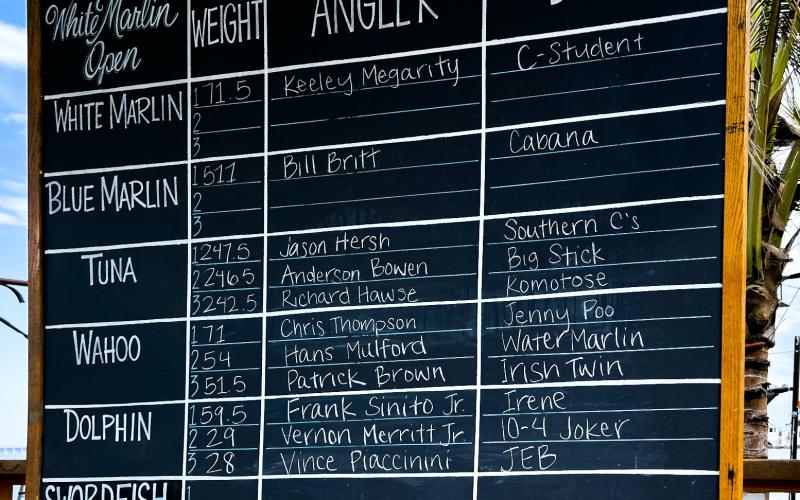 White Marlin Open WEIGHT ANGLER
WHITE MARLIN 1 71.5 Keeley Megarity C-Student
2
3
BLUE MARLIN 1 511 Bill Britt Cabana
2
3
TUNA 1 247.5 Jason Hersh Southern C's
2 246.5 Anderson Bowen Big Stick
3 242.5 Richard Hawse Komotose
WAHOO 1 71 Chris Thompson Jenny Poo
2 54 Hans Mulford Water Marlin
3 51.5 Patrick Brown Irish Twin
DOLPHIN 1 59.5 Frank Sinito Jr. Irene
2 29 Vernon Merritt Jr. 10-4 Joker
3 28 Vince Piaccinini JEB
SWORDFISH 1